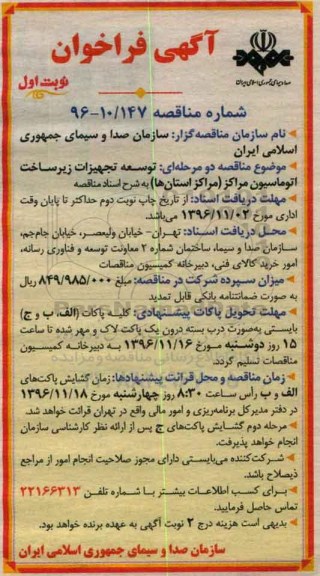 آگهی فراخوان
صدا و سیمای جمهوری اسلامی ایران
نوبت اول
شماره مناقصه ۹۶-۱۰/۱۴۷
نام سازمان مناقصه‌گزار: سازمان صدا و سیمای جمهوری
اسلامی ایران
موضوع مناقصه دو مرحله‌ای: توسعه تجهیزات زیرساخت
اتوماسیون مراکز (مراکز استان‌ها) به شرح اسناد مناقصه
مهلت دریافت اسناد: از تاریخ چاپ نوبت دوم حداکثر تا پایان وقت
اداری مورخ ۱۳۹۶/۱۱/۰۲ می‌باشد.
محل دریافت اسناد: تهران- خیابان ولیعصر، خیابان جام‌جم،
سازمان صدا و سیما، ساختمان شماره ۲ معاونت توسعه و فناوری رسانه،
امور خرید کالای فنی، دبیرخانه کمیسیون مناقصات
میزان سپرده شرکت در مناقصه: مبلغ ۸۴۹/۹۸۵/۰۰۰ ریال
به صورت ضمانتنامه بانکی قابل تمدید
مهلت تحویل پاکات پیشنهادی: کلیه پاکات (الف، ب و ج)
بایستی به‌صورت درب بسته درون یک پاکت لاک و مهر شده تا ساعت
۱۵ روز دوشنبه مورخ ۱۳۹۶/۱۱/۱۶ به دبیرخانه کمیسیون
مناقصات تسلیم گردد.
زمان مناقصه و محل قرائت پیشنهادها: زمان گشایش پاکت‌های
الف و ب رأس ساعت ۸:۳۰ روز چهارشنبه مورخ ۱۳۹۶/۱۱/۱۸
در دفتر مدیرکل برنامه‌ریزی و امور مالی واقع در تهران قرائت خواهد شد.
مرحله دوم گشایش پاکت‌های ج پس از ارائه نظر کارشناسی سازمان
انجام خواهد پذیرفت.
شرکت‌کننده می‌بایستی دارای مجوز صلاحیت انجام امور از مراجع
ذیصلاح باشد.
برای کسب اطلاعات بیشتر با شماره تلفن ۲۲۱۶۶۳۱۳
تماس حاصل فرمایید.
بدیهی است هزینه درج ۲ نوبت آگهی به عهده برنده خواهد بود.
سازمان صدا و سیمای جمهوری اسلامی ایران